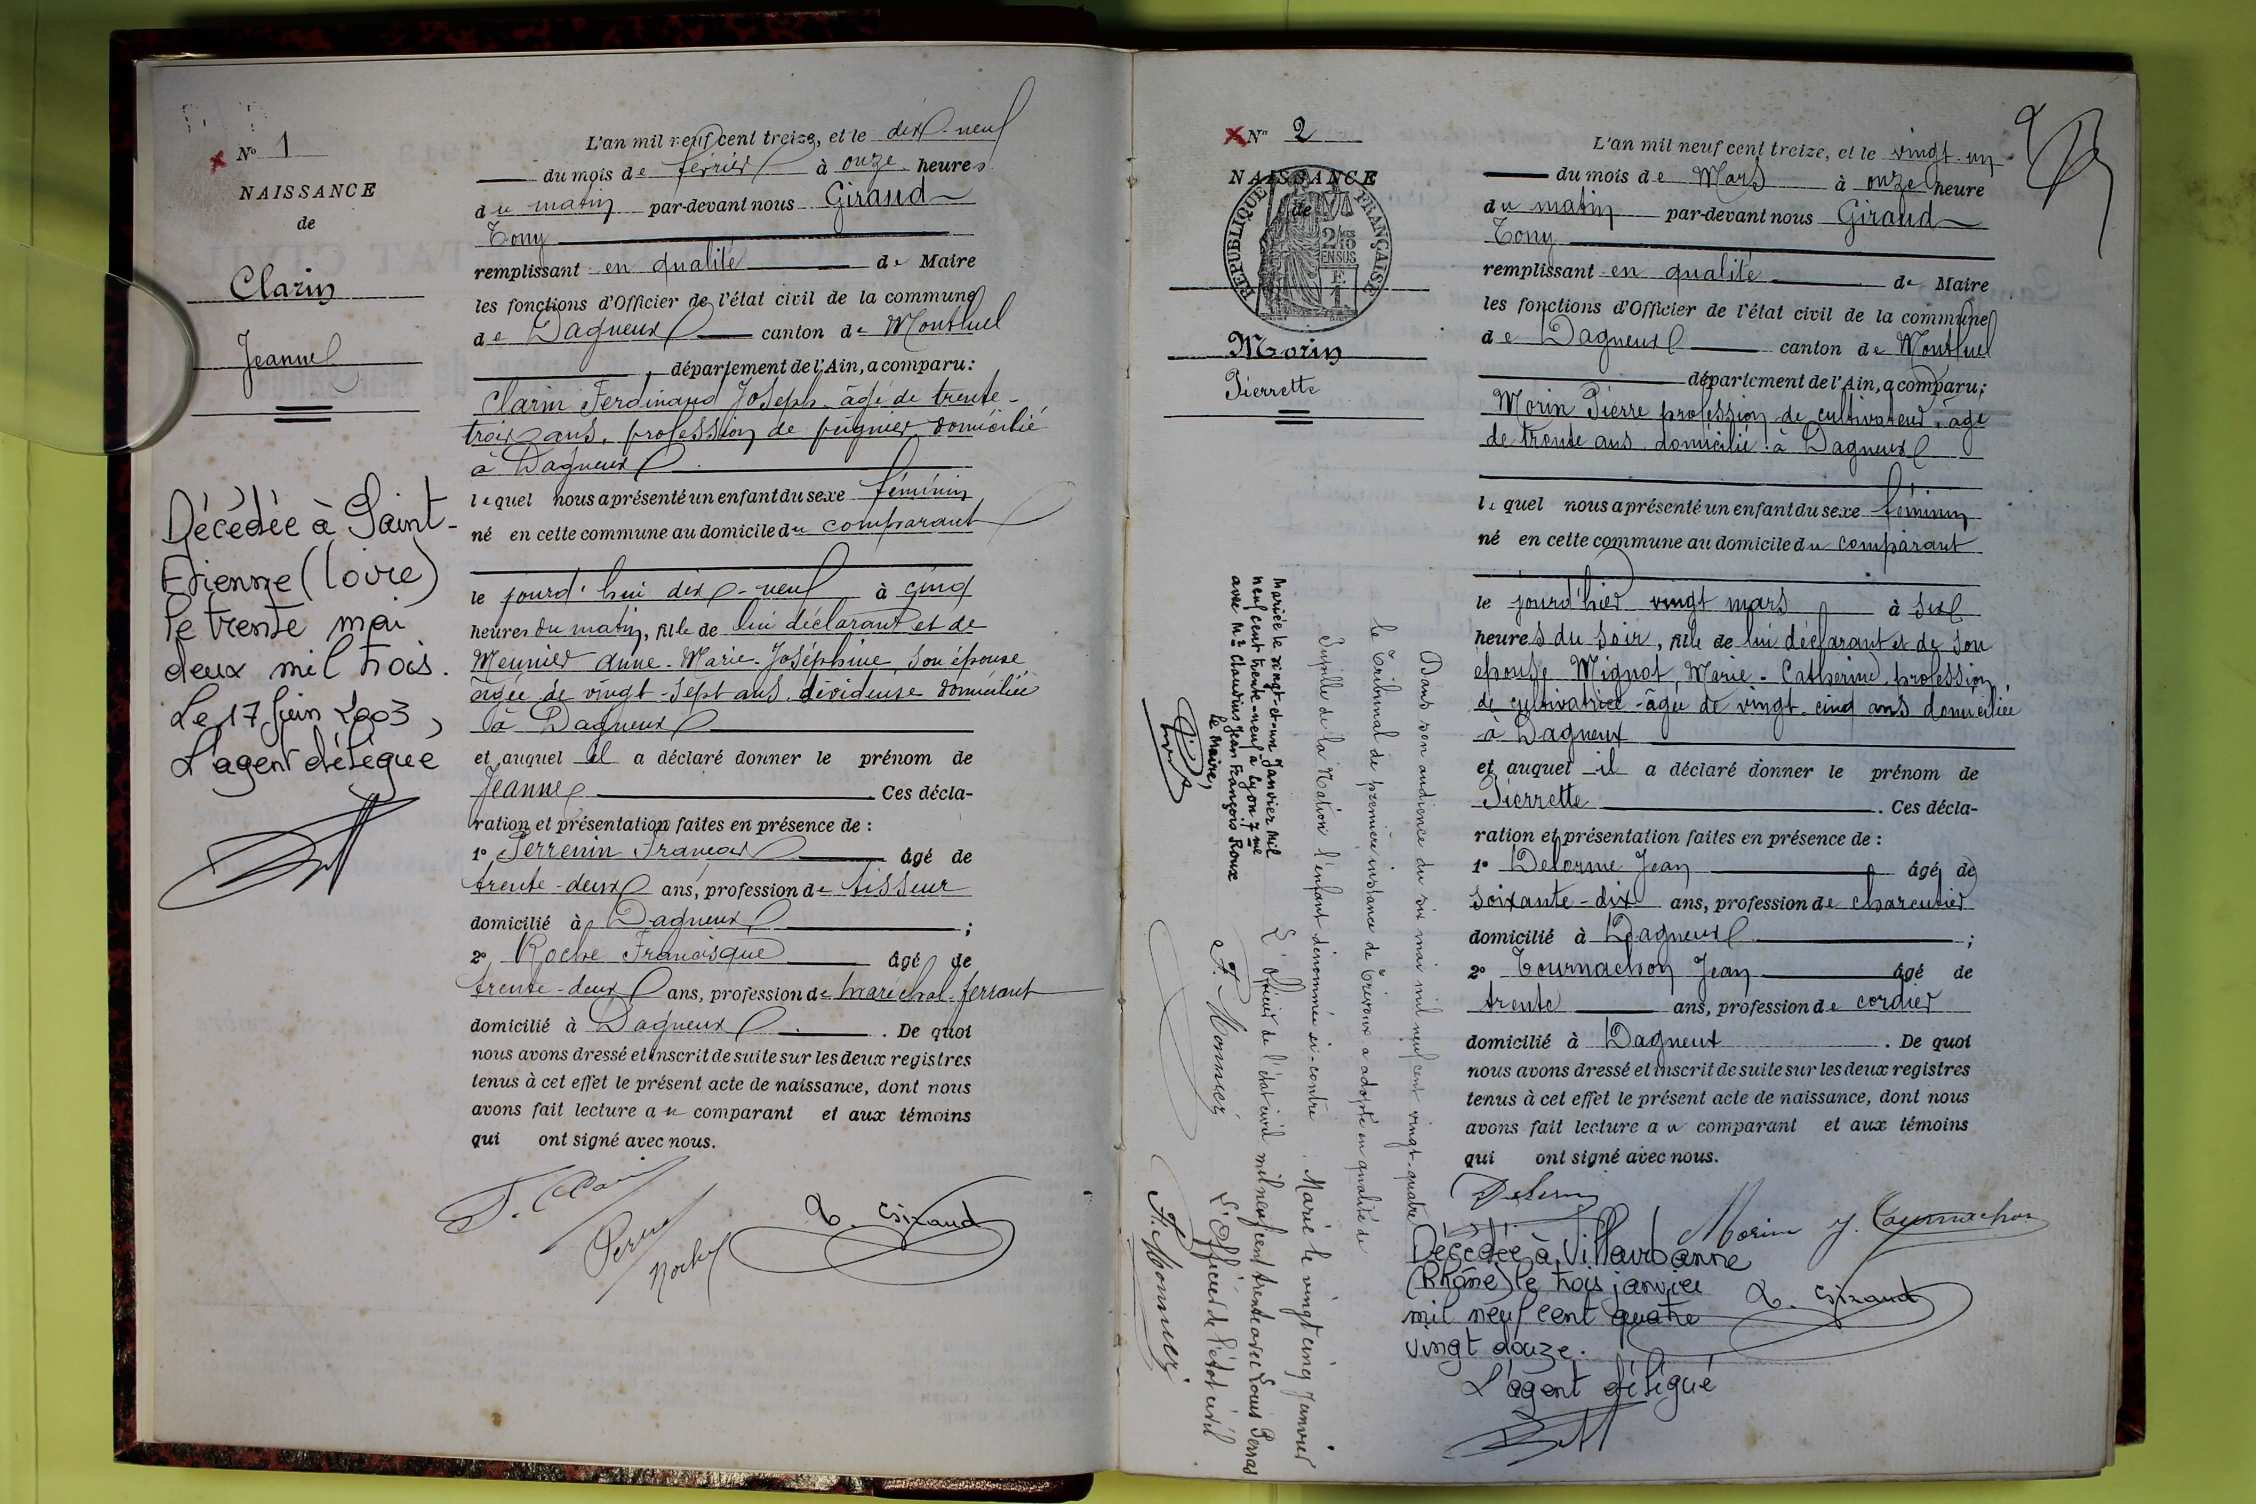 N° 1
NAISSANCE
de
Clarin
Jeanne
Décédée à Saint-
Etienne (Loire)
le trente mai
deux mil trois.
Le 17 juin 2003,
L'agent délégué
L'an mil neuf cent treize, et le dix-neuf
du mois de février à onze heures
du matin par-devant nous Giraud
Tony
remplissant en qualité de Maire
les fonctions d'Officier de l'état civil de la commune
de Dagneux canton de Montluel
département de l'Ain, a comparu:
Clarin Ferdinand Joseph âgé de trente-
trois ans, profession de peignier domicilié
à Dagneux
lequel nous a présenté un enfant du sexe féminin
né en cette commune au domicile du comparant
le jourd'hui dix-neuf à cinq
heures du matin, fille de lui déclarant et de
Meunier Anne-Marie-Joséphine, son épouse
âgée de vingt-sept ans dévideuse domiciliée
à Dagneux
et auquel il a déclaré donner le prénom de
Jeanne Ces décla-
ration et présentation faites en présence de :
1° Perrenin François âgé de
trente-deux ans, profession de tisseur
domicilié à Dagneux ;
2° Roche Francisque âgé de
trente-deux ans, profession de maréchal-ferrant
domicilié à Dagneux . De quoi
nous avons dressé et inscrit de suite sur les deux registres
tenus à cet effet le présent acte de naissance, dont nous
avons fait lecture au comparant et aux témoins
qui ont signé avec nous.
Roche
T. Giraud
N° 2
NAISSANCE
de
RÉPUBLIQUE FRANÇAISE
2/10
EN SUS
Morin
Pierrette
Mariée le vingt-et-un Janvier Mil
neuf cent trente-neuf à Lyon 7me
avec Mr Claudius Jean François Roux
Le Maire,
Dans son audience du six mai mil neuf cent vingt-quatre
le Tribunal de première instance de Trévoux a adopté en qualité de
Pupille de la Nation l'enfant dénommée ci-contre
L'officier de l'état civil
F. Monnier
Marié le vingt cinq Janvier
mil neuf cent trente avec Louis Perras
L'Officier de l'état civil
F. Monnier
L'an mil neuf cent treize, et le vingt-un
du mois de Mars à onze heure
du matin par-devant nous Giraud
Tony
remplissant en qualité de Maire
les fonctions d'Officier de l'état civil de la commune
de Dagneux canton de Montluel
département de l'Ain, a comparu;
Morin Pierre profession de cultivateur, âgé
de trente ans domicilié à Dagneux
lequel nous a présenté un enfant du sexe féminin
né en cette commune au domicile du comparant
le jourd'hier vingt mars à six
heures du soir, fille de lui déclarant et de son
épouse Mignot, Marie-Catherine, profession
de cultivatrice âgée de vingt-cinq ans domiciliée
à Dagneux
et auquel il a déclaré donner le prénom de
Pierrette . Ces décla-
ration et présentation faites en présence de :
1° Delorme Jean âgé de
soixante-dix ans, profession de charcutier
domicilié à Dagneux ;
2° Tournachon Jean âgé de
trente ans, profession de cordier
domicilié à Dagneux . De quoi
nous avons dressé et inscrit de suite sur les deux registres
tenus à cet effet le présent acte de naissance, dont nous
avons fait lecture au comparant et aux témoins
qui ont signé avec nous.
Morin J. Tournachon
T. Giraud
Décédée à Villeurbanne
(Rhône) le trois janvier
mil neuf cent quatre
vingt douze.
L'agent délégué